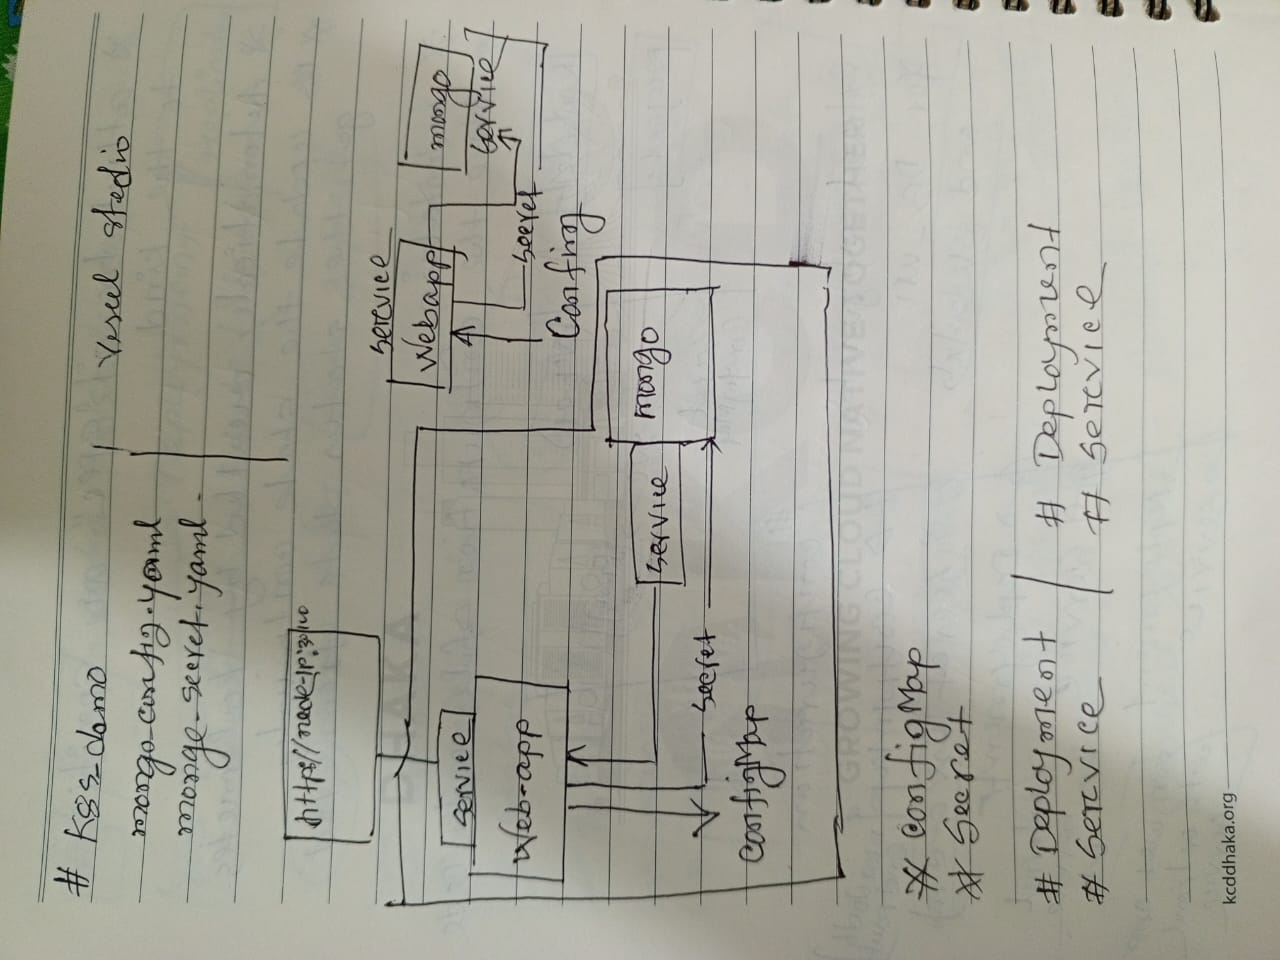 # K8s_demo
mongo-config.yaml
mongo-secret.yaml
Viseul stedio
http://node-Ip:30100
service
Web-app
service
mongo
secret
ConfigMap
sercvice
Webapp
mongo
service
secret
Confing
DHAKA
GROWING CLOUD NATIVE TOGETHER
* configMap
* Secret
# Deployment
# Sercvice
# Deployment
# Sercvice
kcddhaka.org